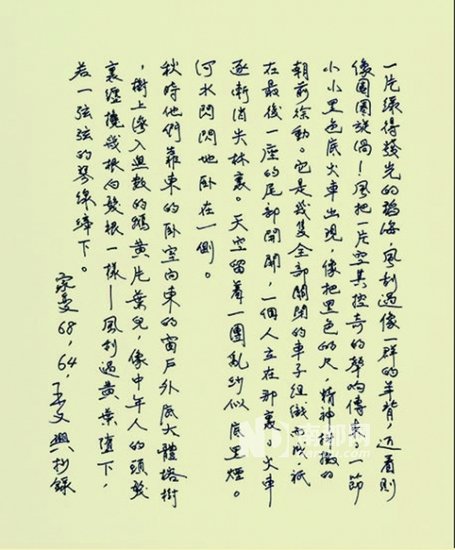 一片綠得發光的稻海，風刮過像一群的羊背，近看則
像團團旋渦！風把一片空其控奇的聲响傳來，一節
小小黑色底火車出現，像把黑色的尺，精神抖擻的
朝前徐動。它是幾隻全部關閉的車子組織而成，祇
在最後一座的尾部開開，一個人立在那裏。火車
逐漸消失林裏。天空留着一團亂紗似底黑煙。
河水閃閃地卧在一側。
秋時他們靠東的卧室向東的窗戶外底大體榕樹
，樹上滲入無數的鵝黃片葉兒，像中年人的頭髮
裏纏繞幾根白髮根一樣——風刮過黃葉墮下，
若一弦弦的琴線墜下。
家變68，64，王文興抄錄